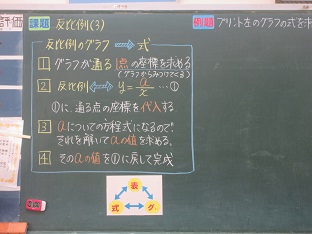 評価
課題 反比例(3)
例題 プリント左のグラフの式を求
反比例のグラフ ⟹ 式
1 グラフが通る1点の座標を求める
(グラフからみつけてくる)
2 反比例 ⟺ y=a/x …①
①に、通る点の座標を代入する
3 aについての方程式になるので、
それを解いてaの値を求める。
4 そのaの値を①に戻して完成
表
式 グ